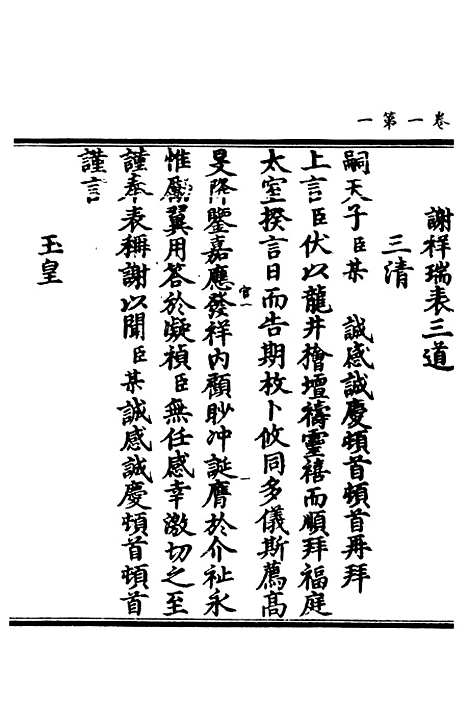 卷第一 一
謝祥瑞表三道
三清
嗣天子臣某 誠感誠慶頓首頓首再拜
上言臣伏以龍井檜壇禱靈禧而順拜福庭
太室揆言日而告期枚卜攸同多儀斯薦高
旻降鑒嘉應發祥內顧眇冲誕膺於介祉永
惟勵翼用答於凝禎臣無任感幸激切之至
謹奉表稱謝以聞臣某誠感誠慶頓首頓首
謹言
玉皇